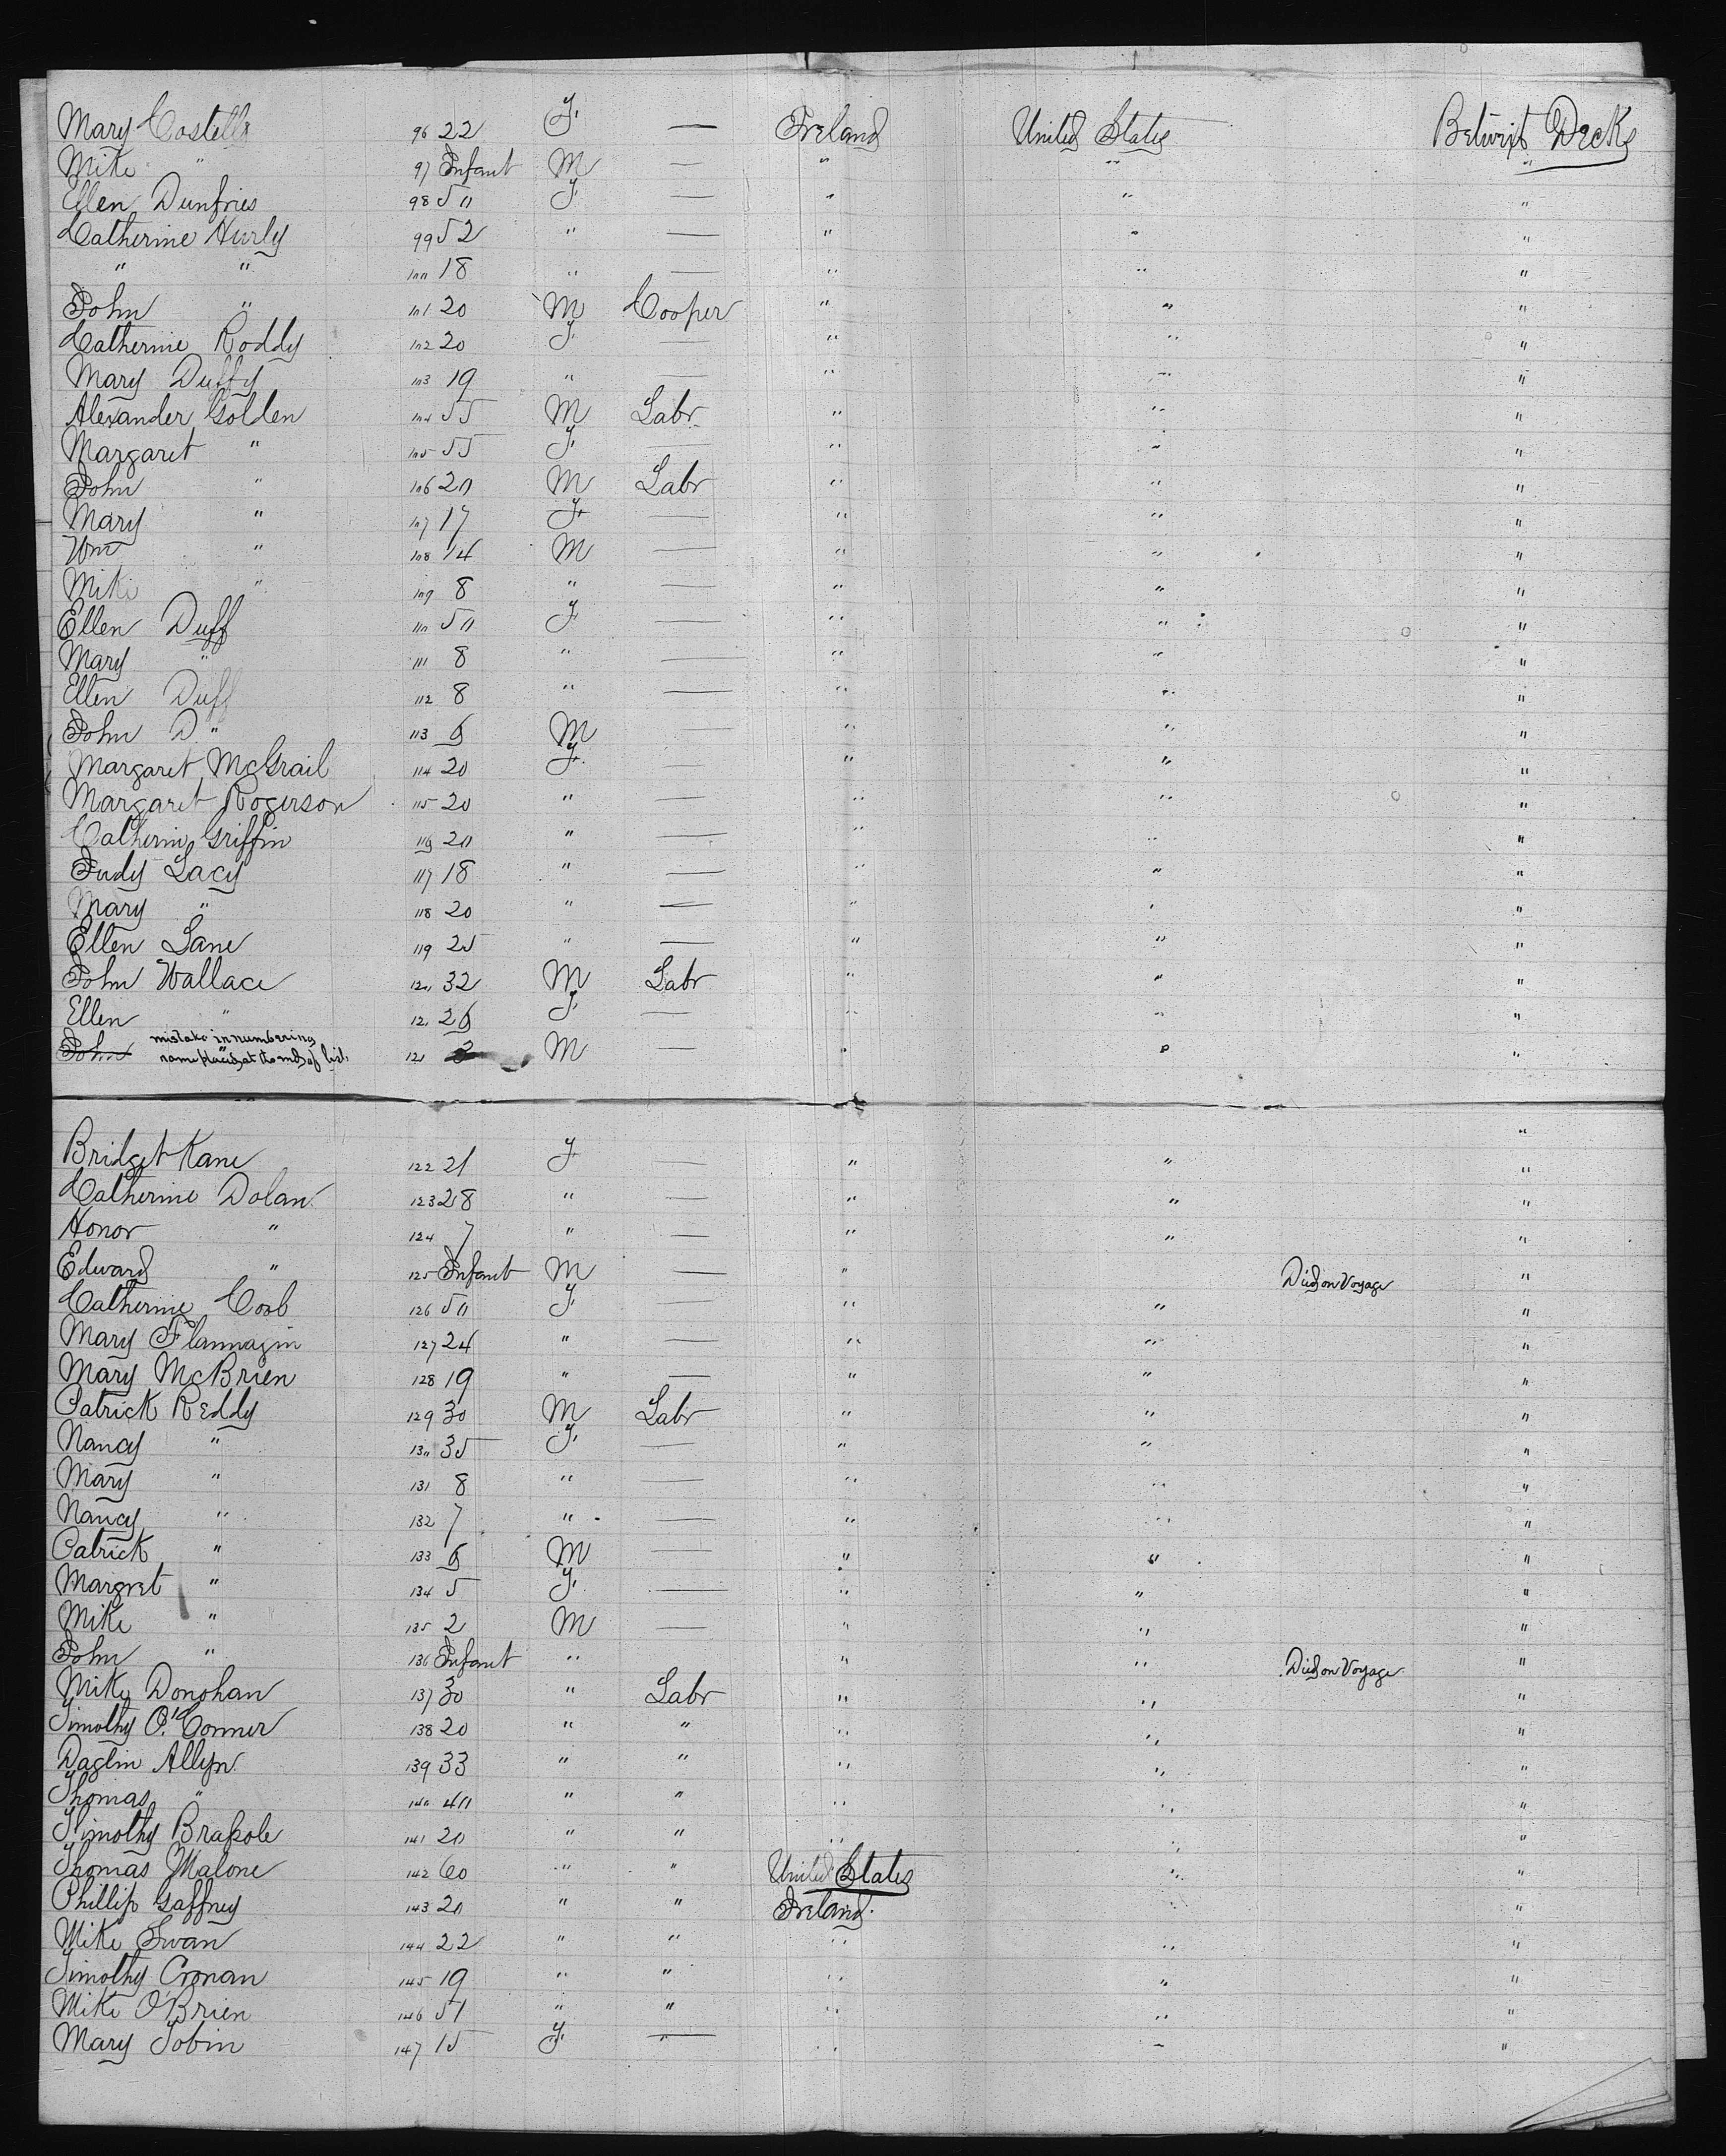 Mary Costello 96 22 F. — Ireland United States Betwixt Decks
Mike " 97 Infant M — " " "
Ellen Dunfries 98 50 F. — " " "
Catherine Hurly 99 52 " — " " "
" " 100 18 " — " " "
John " 101 20 M Cooper " " "
Catherine Roddy 102 20 F. — " " "
Mary Duffy 103 19 " — " " "
Alexander Golden 104 55 M Labr " " "
Margaret " 105 55 F. — " " "
John " 106 20 M Labr " " "
Mary " 107 17 F. — " " "
Wm " 108 14 M — " " "
Mike " 109 8 " — " " "
Ellen Duff 110 50 F. — " " "
Mary " 111 8 " — " " "
Ellen Duff 112 8 " — " " "
John D " 113 6 M — " " "
Margaret McGrail 114 20 F. — " " "
Margaret Rogerson 115 20 " — " " "
Catherin Griffin 116 20 " — " " "
Judy Lacy 117 18 " — " " "
Mary " 118 20 " — " " "
Ellen Lane 119 25 " — " " "
John Wallace 120 32 M Labr " " "
Ellen " 121 26 F. — " " "
mistake in numbering
John name placed at the end of list 121 M — " " "
"
Bridget Kane 122 21 F. — " " "
Catherine Dolan 123 28 " — " " "
Honor " 124 7 " — " " "
Edward " 125 Infant M — " Died on Voyage "
Catherine Coob 126 50 F. — " " "
Mary Flannagin 127 24 " — " " "
Mary McBrien 128 19 " — " " "
Patrick Reddy 129 30 M Labr " " "
Nancy " 130 35 F. — " " "
Mary " 131 8 " — " " "
Nancy " 132 7 " — " " "
Patrick " 133 6 M — " " "
Margret " 134 5 F. — " " "
Mike " 135 2 M — " " "
John " 136 Infant " " " Died on Voyage "
Mike Donohan 137 30 " Labr " " "
Timothy O'Conner 138 20 " " " " "
Daglin Allyn 139 33 " " " " "
Thomas " 140 40 " " " " "
Timothy Brassole 141 20 " " " " "
Thomas Malone 142 60 " " United States " "
Phillip Gaffney 143 20 " " Ireland " "
Mike Swan 144 22 " " " " "
Timothy Cronan 145 19 " " " " "
Mike O'Brien 146 51 " " " " "
Mary Tobin 147 15 F. — " " "